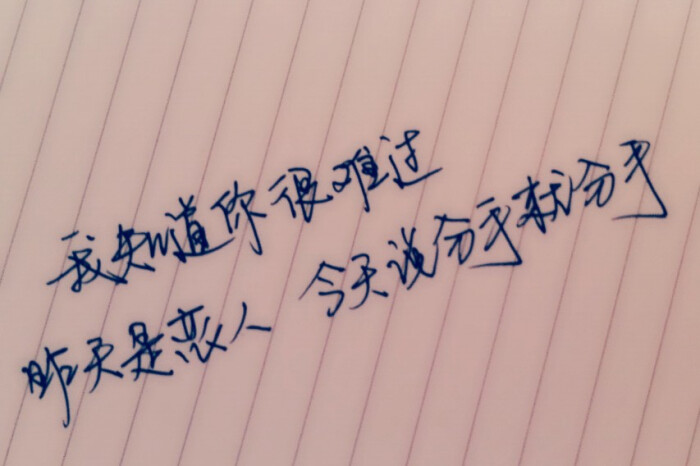 我知道你很难过
昨天是恋人 今天说分手就分手